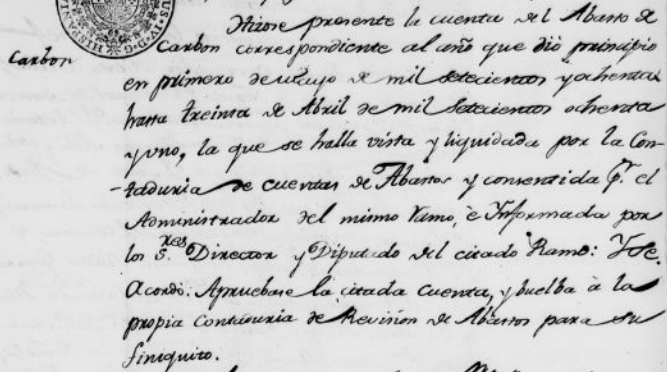 Hizose presente la cuenta del Abasto de
Carbon
Carbon correspondiente al año que dió principio
en primero de Mayo de mil setecientos y ochenta
hasta treinta de Abril de mil setecientos ochenta
y uno, la que se halla vista y liquidada por la Con-
-taduria de cuentas de Abastos y consentida pr. el
Administrador del mismo Ramo, è Informada por
los Sres. Director y Diputado del citado Ramo: Y se
Acordò: Apruebase la citada Cuenta, y buelba à la
propia Contaduria de Revision de Abastos para su
finiquito.